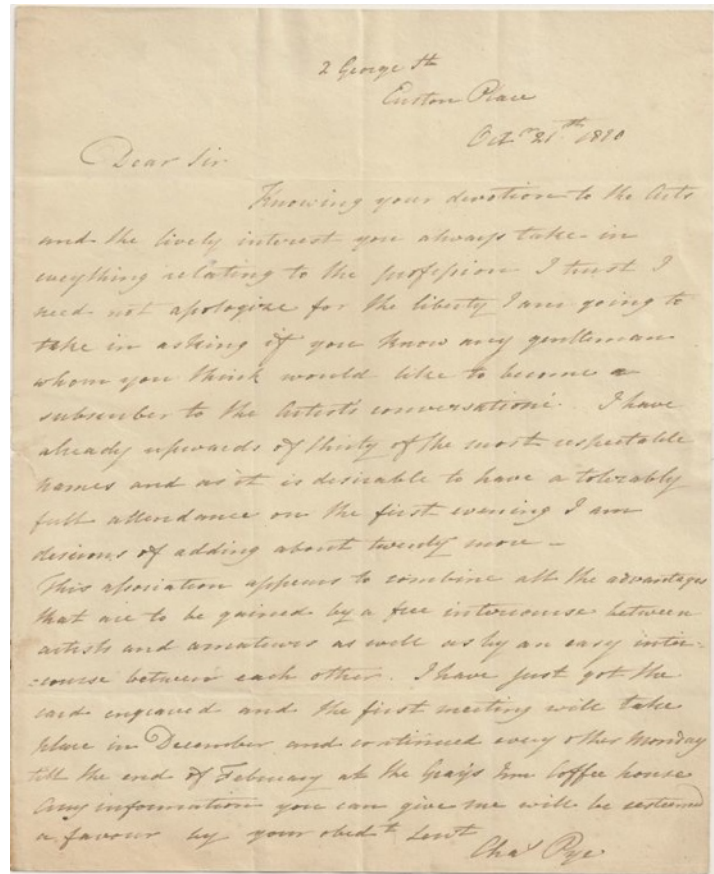 2 George St
Euston Place
Octr 21st 18
Dear Sir
Knowing your devotion to the Arts
and the lively interest you always take in
evything relating to the profession I trust I
need not apologize for the liberty I am going to
take in asking if you know any gentleman
whom you think would like to become a
subscriber to the Artist's conversationi. I have
already upwards of thirty of the most respectable
names and as it is desirable to have a tolerably
full attendance on the first evening I am
desirous of adding about twenty more —
This association appears to combine all the advantages
that are to be gained by a free intercourse between
artists and amateurs as well as by an easy inter-
-course between each other. I have just got the
card engraved and the first meeting will take
place in December and continued every other Monday
till the end of February at the Grays Inn Coffee house
Any information you can give me will be esteemed
a favour by your obedt Servt
Chas Pye